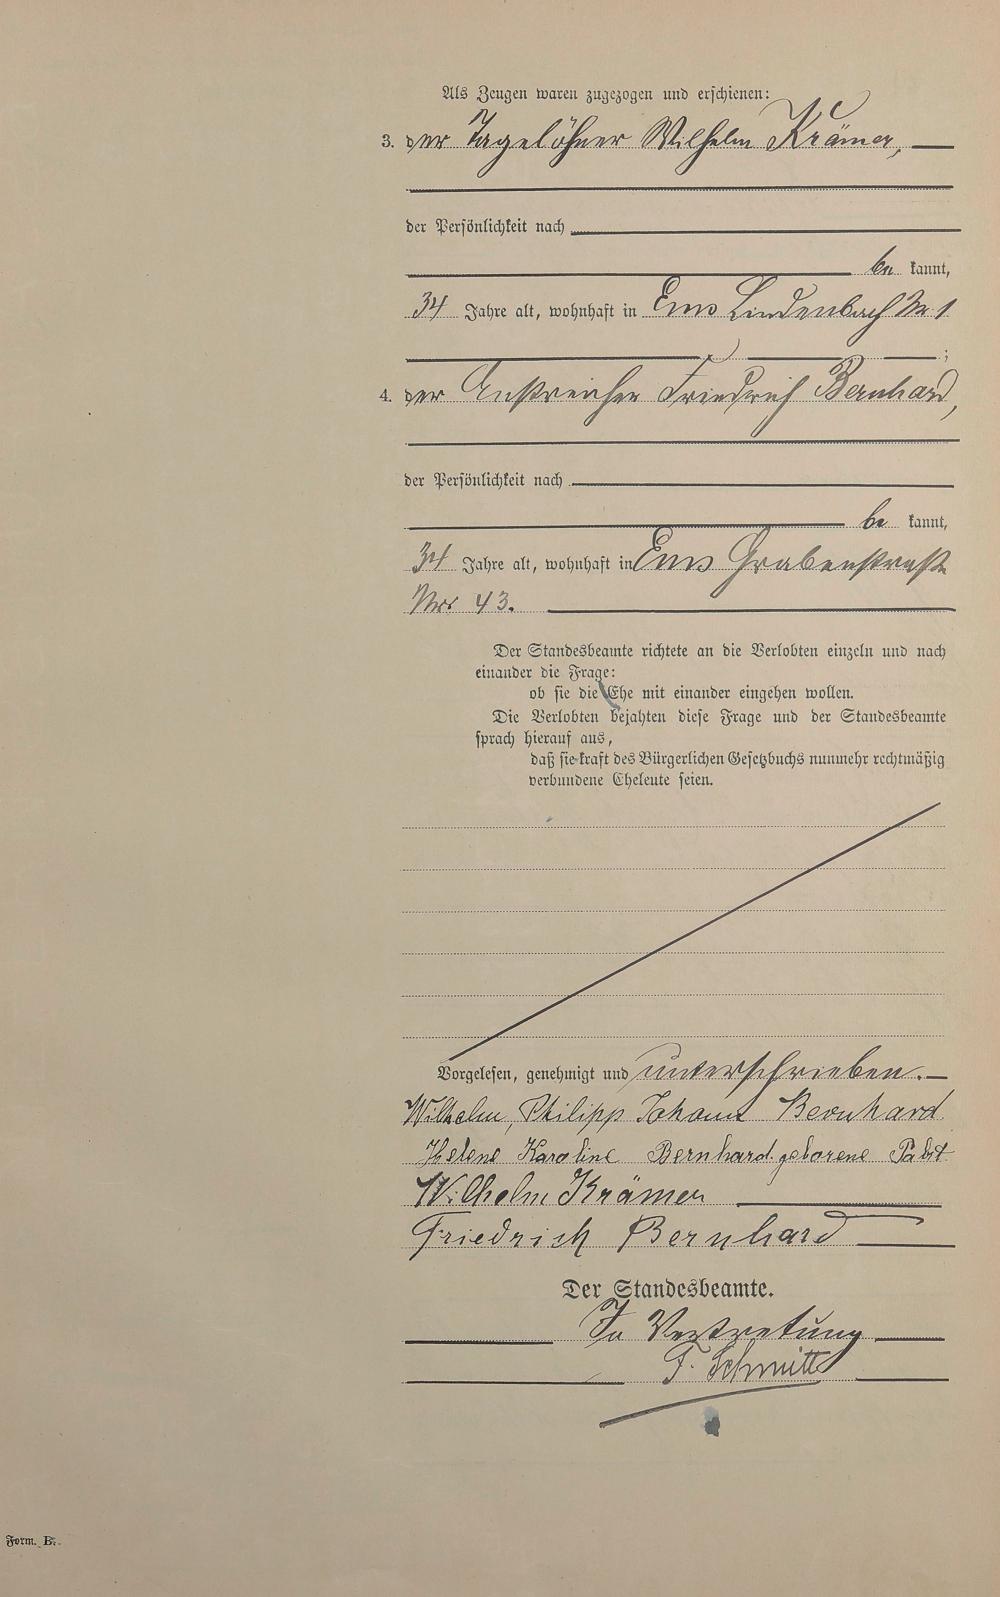 Als Zeugen waren zugezogen und erschienen:
3. der Tagelöhner Wilhelm Krämer,
der Persönlichkeit nach
be kannt,
34 Jahre alt, wohnhaft in Ems Lindenbach No 1
;
4. der Anstreicher Friedrich Bernhard,
der Persönlichkeit nach
be kannt,
34 Jahre alt, wohnhaft in Ems Grabenstraße
Nro 43.
Der Standesbeamte richtete an die Verlobten einzeln und nach
einander die Frage:
ob sie die Ehe mit einander eingehen wollen.
Die Verlobten bejahten diese Frage und der Standesbeamte
sprach hierauf aus,
daß sie kraft des Bürgerlichen Gesetzbuchs nunmehr rechtmäßig
verbundene Eheleute seien.
Vorgelesen, genehmigt und unterschrieben.
Wilhelm, Philipp Johann Bernhard
Helene Karoline Bernhard geborene Pabst
Wilhelm Krämer
Friedrich Bernhard
Der Standesbeamte.
In Vertretung
F. Schmitt
Form. B.